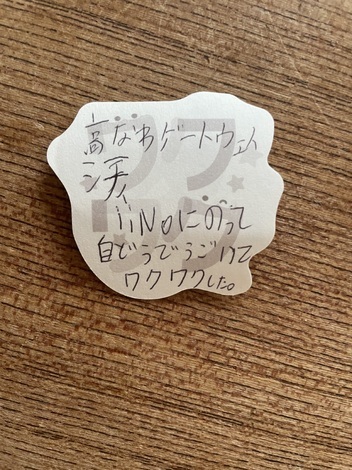 高なわゲートウェイ
iiNoにのって
自どうでうごいて
ワクワクした。
ワク
ワク